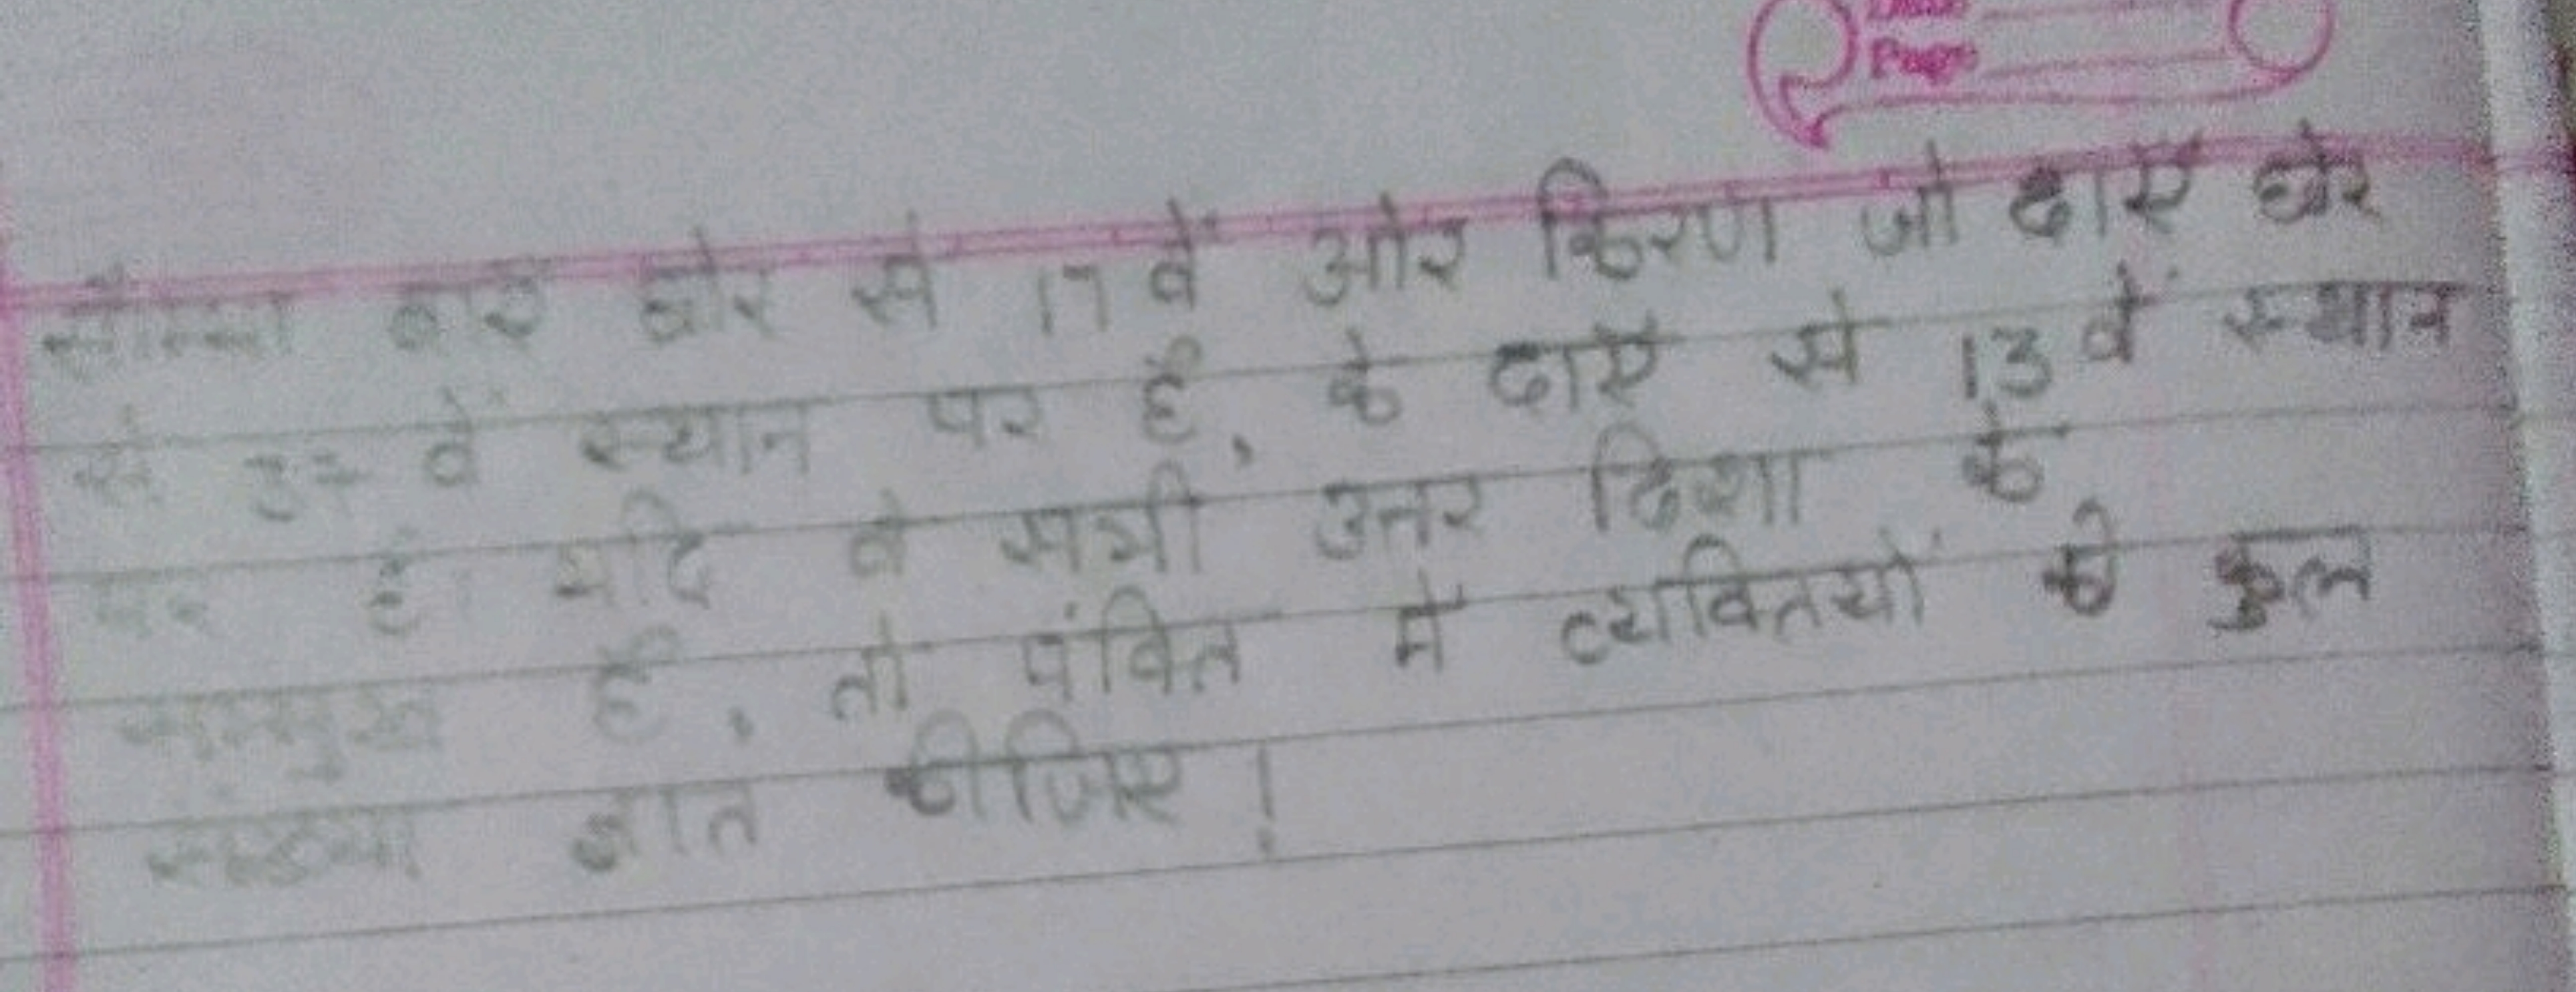 Page
बाएं छोर से 17 वें और किरण जो दाएं छोर
से वें स्थान पर हैं, के दाएं से 13 वें स्थान
पर हैं। यदि वे सभी उत्तर दिशा के
सम्मुख हैं, तो पंक्ति में व्यक्तियों की कुल
संख्या ज्ञात कीजिए!